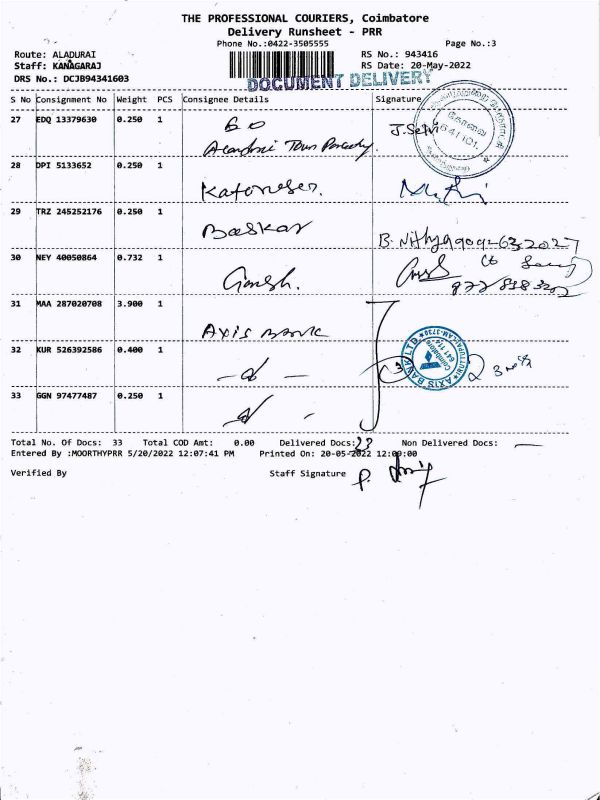 THE PROFESSIONAL COURIERS, Coimbatore
Delivery Runsheet - PRR
Phone No.:0422-3505555 Page No.:3
Route: ALADURAI RS No.: 943416
Staff: KANAGARAJ RS Date: 20-May-2022
DRS No.: DCJB94341603 DOCUMENT DELIVERY
S No Consignment No Weight PCS Consignee Details Signature
27 EDQ 13379630 0.250 1 J. Selvi
641101.
28 DPI 5133652 0.250 1
29 TRZ 245252176 0.250 1 Baskar
30 NEY 40050864 0.732 1 Ganesh.
31 MAA 287020708 3.900 1 AXIS BANK
AXIS BANK LTD
Coimbatore
32 KUR 526392586 0.400 1
33 GGN 97477487 0.250 1
Total No. Of Docs: 33 Total COD Amt: 0.00 Delivered Docs: Non Delivered Docs: —
Entered By :MOORTHYPRR 5/20/2022 12:07:41 PM Printed On: 20-05-2022 12:09:00
Verified By Staff Signature